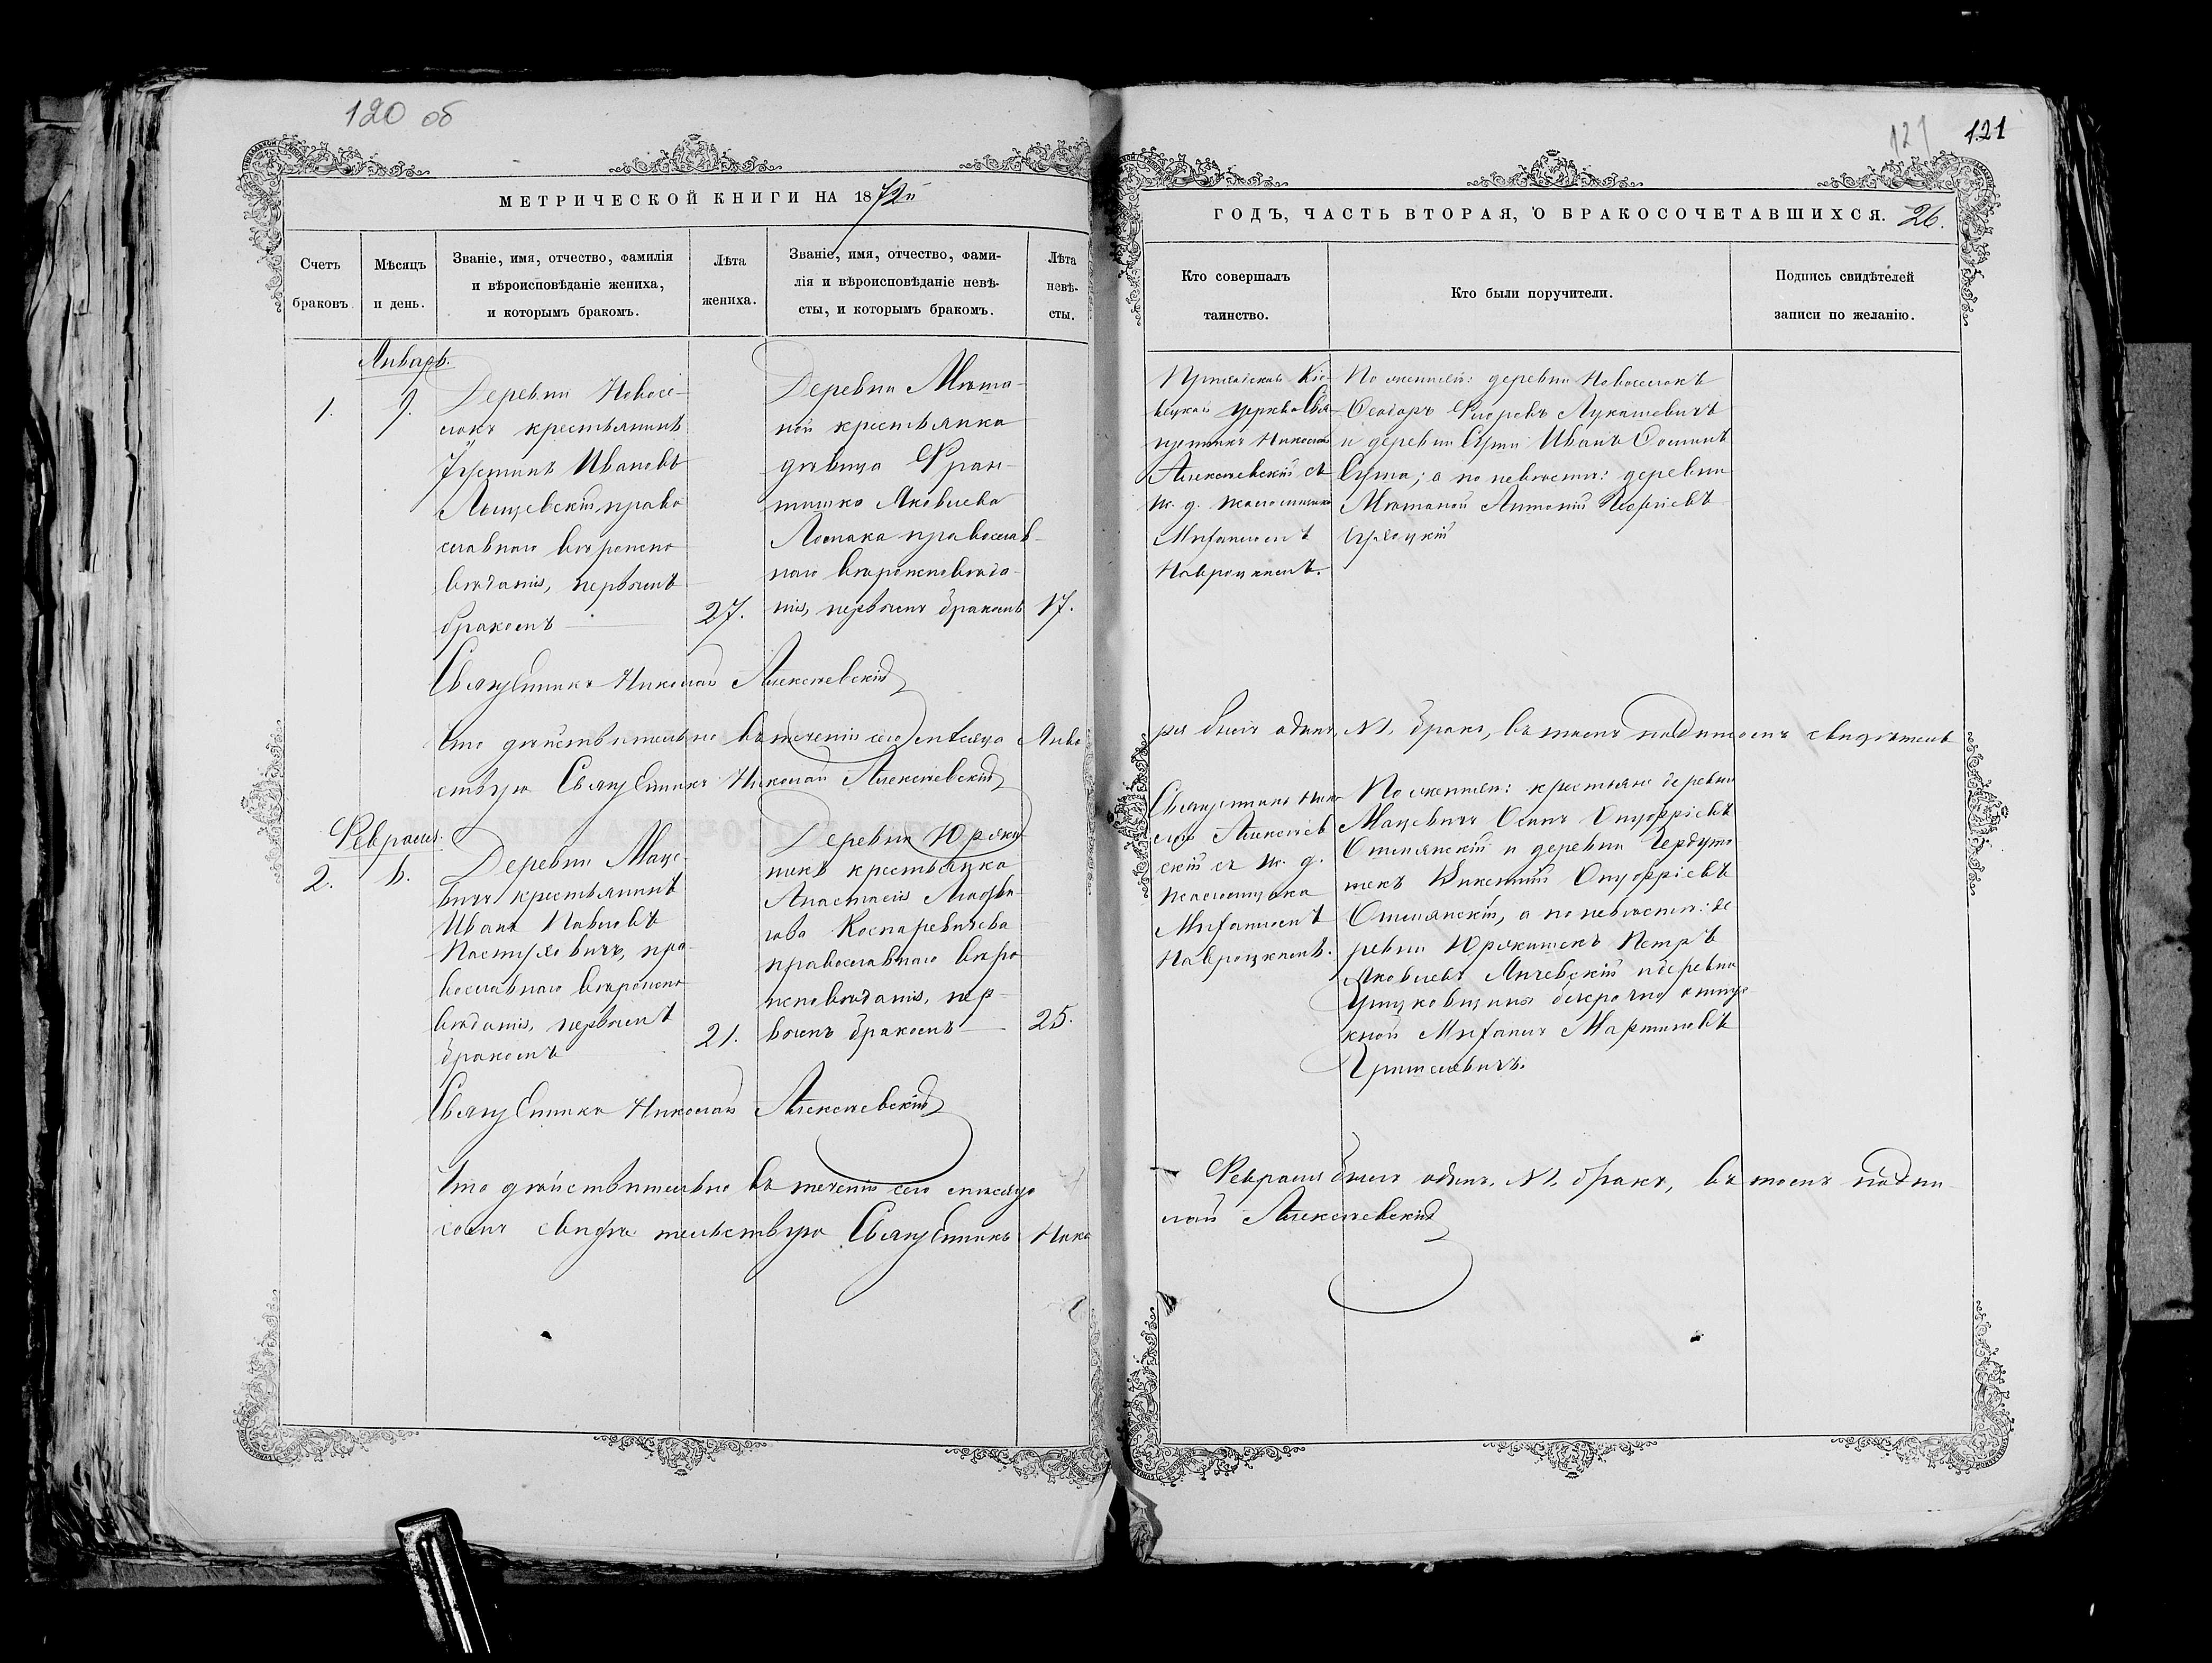 120 об
МЕТРИЧЕСКОЙ КНИГИ НА 1872й
Счетъ
браковъ
Мѣсяцъ
и день.
Званіе, имя, отчество, фамилія
и вѣроисповѣданіе жениха,
и которымъ бракомъ.
Лѣта
жениха.
Званіе, имя, отчество, фами-
лія и вѣроисповѣданіе невѣ-
сты, и которымъ бракомъ.
Лѣта
невѣ-
сты.
Январь.
1.
9.
Деревни Новосе-
локъ крестьянинъ
Іустинъ Ивановъ
православнаго вѣроиспо
вѣданія, первымъ
бракомъ
27.
Деревни Мѣта-
ной крестьянка
дѣвица Фран-
тишка Яковлева
православ-
наго вѣроисповѣда-
нія, первымъ бракомъ
17.
Священникъ Николай Алексѣевскій
Что дѣйствительно въ теченіи сего мѣсяца Янва
ствую Священникъ Николай Алексѣевскій
Февраль.
2.
6.
Деревни Маце-
вичъ крестьянинъ
Иванъ Павловъ
Пастуховичъ, пра-
вославнаго вѣроиспо
вѣданія, первымъ
бракомъ
21.
Деревни
крестьянка
Анастасія
Каспаревичева
православнаго вѣро
исповѣданія, пер-
вымъ бракомъ
25.
Священникъ Николай Алексѣевскій
Что дѣйствительно въ теченіи сего мѣсяца
сомъ свидѣтельствую Священникъ Нико
121
121
ГОДЪ, ЧАСТЬ ВТОРАЯ, О БРАКОСОЧЕТАВШИХСЯ.
26.
Кто совершалъ
таинство.
Кто были поручители.
Подпись свидѣтелей
записи по желанію.
церкви Свя-
щенникъ Николай
Алексѣевскій съ
и. д. псаломщика
Мифаномъ
Навроцкимъ.
По женихѣ: деревни Новоселокъ
Ѳеодоръ Лукашевичъ
и деревни Иванъ
а по невѣстѣ: деревни
Мѣтаной Антоній
ря былъ одинъ, №1, бракъ, въ томъ подписомъ свидѣтель
Священникъ Нико
лай Алексѣев
скій съ и. д.
псаломщика
Мифаномъ
Навроцкимъ.
По женихѣ: крестьяне деревни
Мацевичъ Осипъ Онуфріевъ
и деревни
Викентій Онуфріевъ
а по невѣстѣ: де
ревни Петръ
Яковлевъ и деревни
безсрочно отпус
кной Мифанъ Мартиновъ
Февраля былъ одинъ, №1, бракъ, въ томъ подпи
лай Алексѣевскій